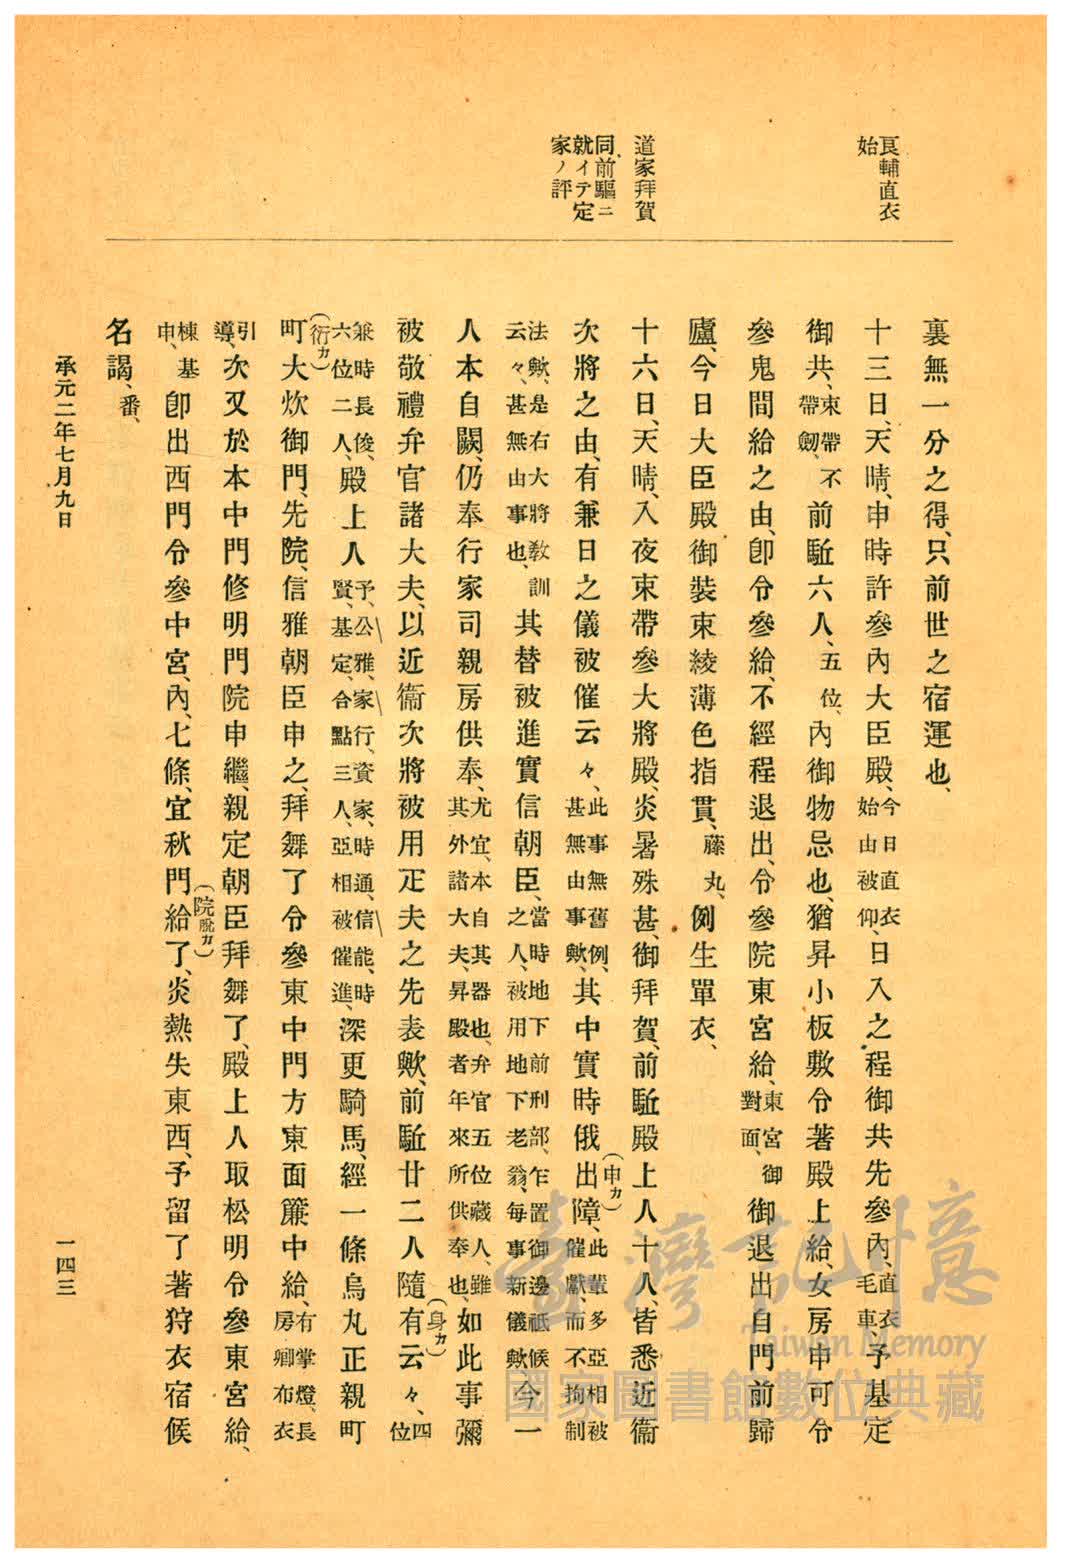 良輔直衣
始
道家拜賀
同前驅ニ
就イテ定
家ノ評
裏無一分之得、只前世之宿運也、
十三日、天晴、申時許參內大臣殿、今日直衣始由被仰、日入之程御共先參內、直衣毛車、予基定
御共、束帶不帶劔、前駈六人、五位、內御物忌也、猶昇小板敷令著殿上給、女房申可令
參鬼間給之由、卽令參給、不經程退出、令參院東宮給、東宮御對面、御退出自門前歸
廬、今日大臣殿御裝束綾薄色指貫、藤丸、例生單衣、
十六日、天晴、入夜束帶參大將殿、炎暑殊甚、御拜賀、前駈殿上人十人、皆悉近衞
次將之由、有兼日之儀被催云々、此事無舊例、甚無由事歟、其中實時俄出障、(申カ)此輩多亞相被催獻、而不拘制
法歟、是右大將敎訓云々、甚無由事也、其替被進實信朝臣、當時地下前刑部、乍置御邊祗候之人、被用地下老翁、每事新儀歟、今一
人本自闕、仍奉行家司親房供奉、尤宜、本自其器也、弁官五位藏人、雖其外諸大夫、昇殿者年來所供奉也、如此事彌
被敬禮弁官諸大夫、以近衞次將被用疋夫之先表歟、前駈廿二人隨有(身カ)云々、四位
兼時長俊、六位二人、殿上人予、公雅、家行、資家、時通、信能、時賢、基定、合點三人、亞相被催進、深更騎馬、經一條烏丸正親町
町(衍カ)大炊御門、先院、信雅朝臣申之、拜舞了令參東中門方東面簾中給、有掌燈、長房卿布衣
引導、次又於本中門修明門院申繼、親定朝臣拜舞了、殿上人取松明令參東宮給、
棟基申、卽出西門令參中宮、內、七條、宜秋門(院脫カ)給了、炎熱失東西、予留了著狩衣宿候
名謁、番、
承元二年七月九日
一四三
臺灣記憶
Taiwan Memory
國家圖書館數位典藏